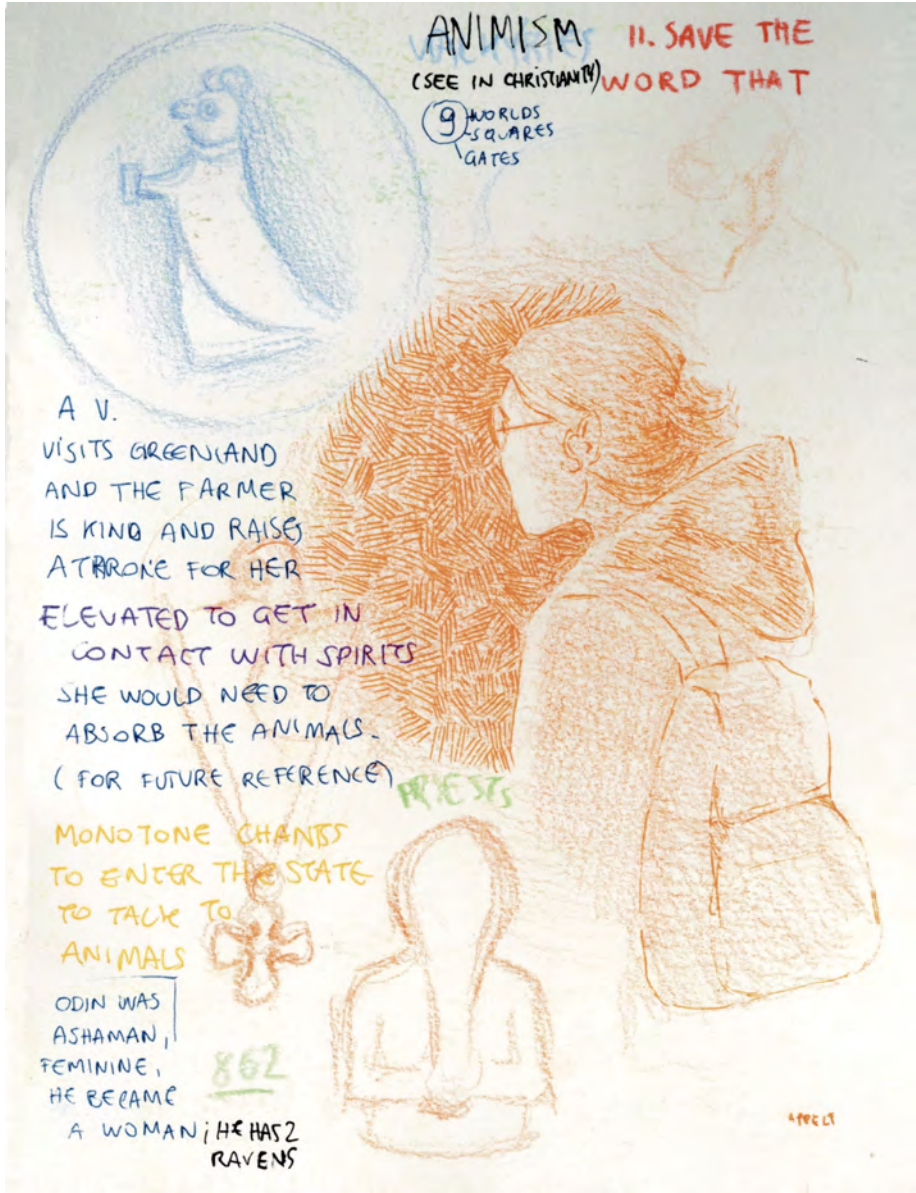 ANIMISM
(SEE IN CHRISTIANITY)
9 WORLDS
SQUARES
GATES
11. SAVE THE
WORD THAT
A V.
VISITS GREENLAND
AND THE FARMER
IS KIND AND RAISES
A THRONE FOR HER
ELEVATED TO GET IN
CONTACT WITH SPIRITS
SHE WOULD NEED TO
ABSORB THE ANIMALS.
(FOR FUTURE REFERENCE)
PRIESTS
MONOTONE CHANTS
TO ENTER THE STATE
TO TALK TO
ANIMALS
ODIN WAS
ASHAMAN,
FEMININE,
HE BECAME
A WOMAN; HE HAS 2
RAVENS
862